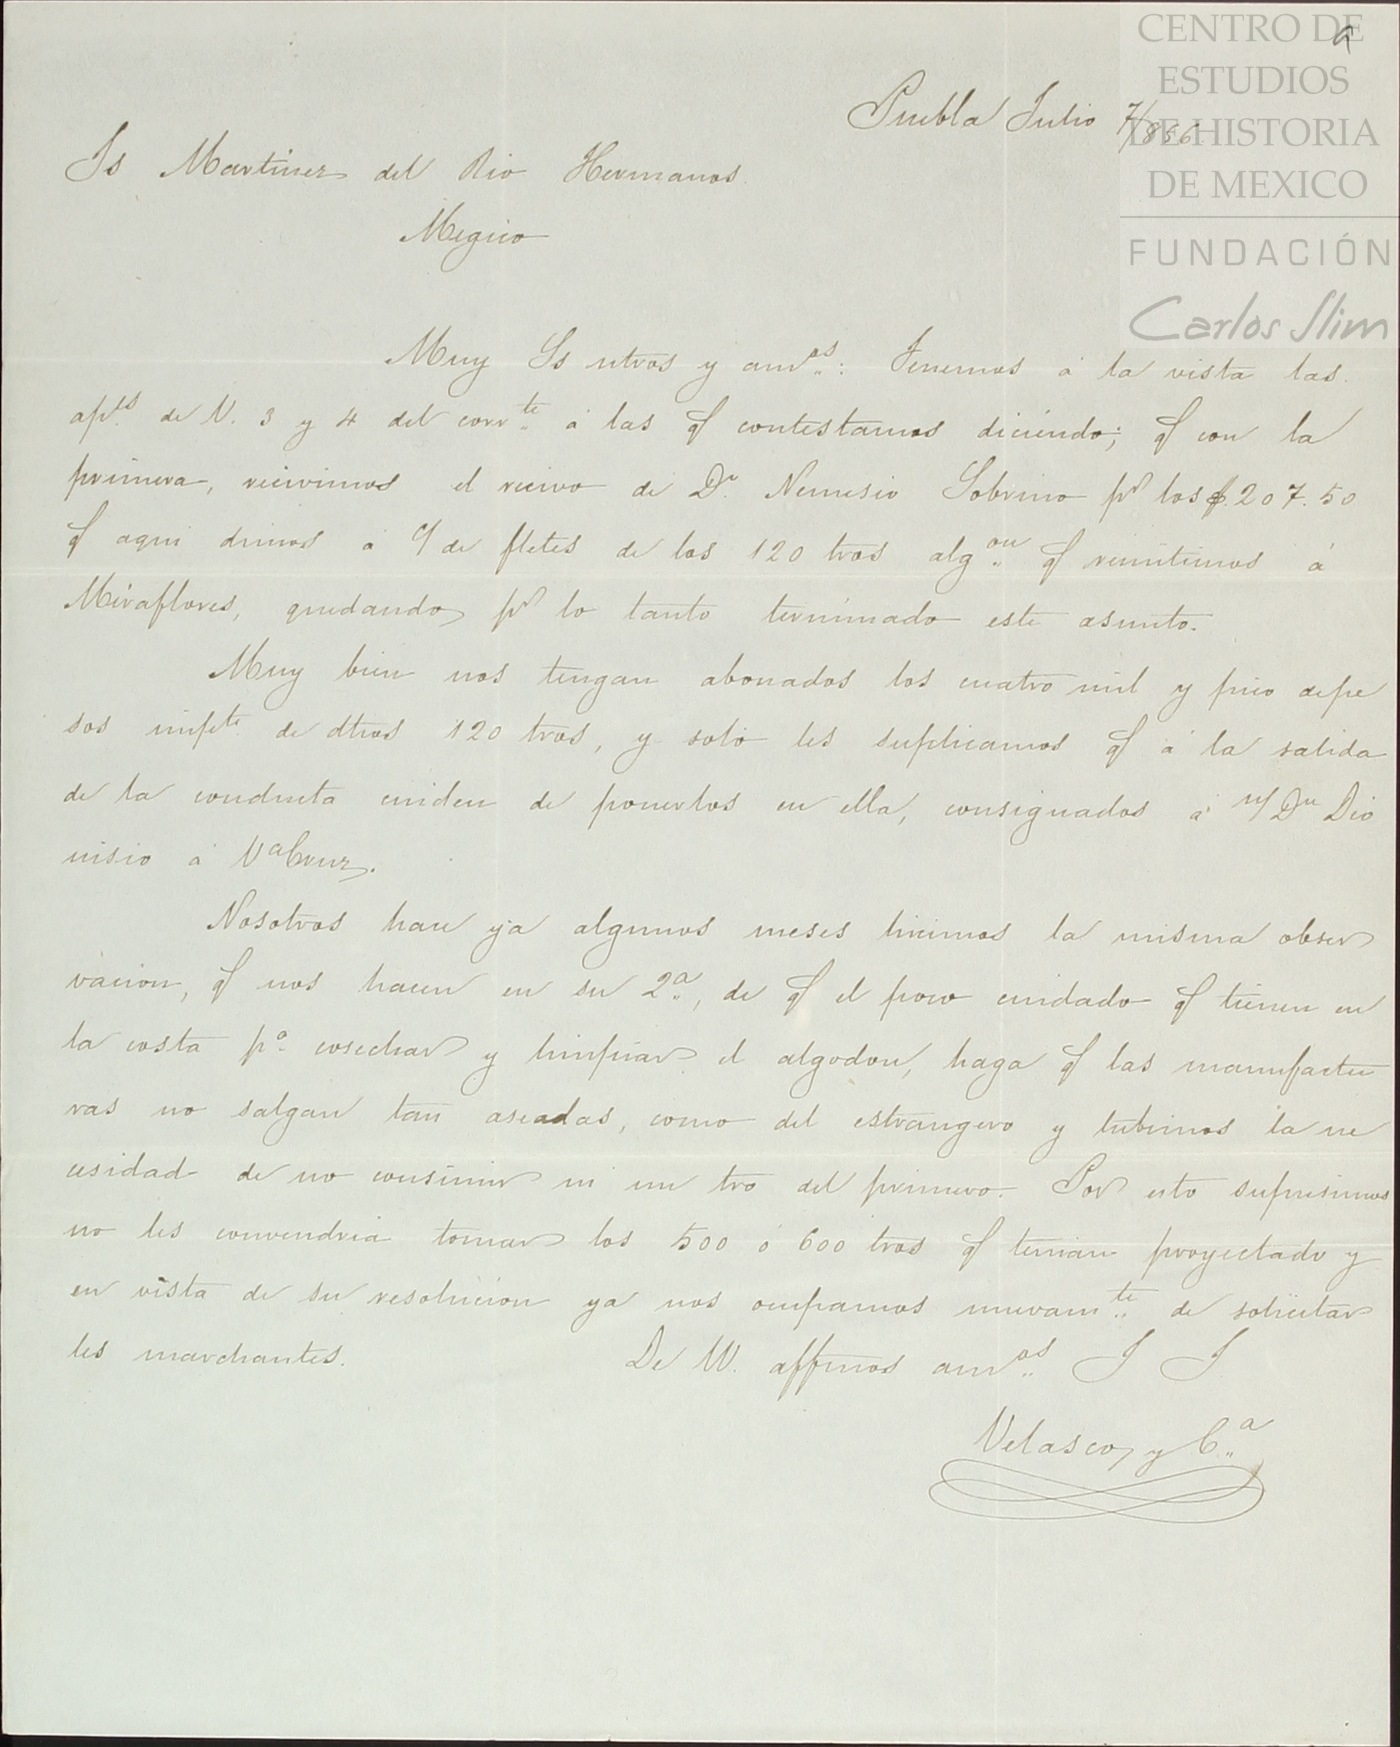 CENTRO DE
ESTUDIOS
DE HISTORIA
DE MEXICO
FUNDACIÓN
Carlos Slim
9
Puebla Julio 7/856
Ss Martinez del Rio Hermanos.
Megico
Muy Ss ntros y am.os: Tenemos á la vista las
ap.ts de V. 3 y 4 del corr.te á las q contestamos diciendo; q con la
primera, recivimos el recivo de D.n Nemesio Sobrino pr los $.207.50
q aqui dimos á c/ de fletes de los 120 tros alg.on q remitimos á
Miraflores, quedando pr lo tanto terminado este asunto.
Muy bien nos tengan abonados los cuatro mil y pico de pe
sos impte. de dhos 120 tros, y solo les suplicamos q á la salida
de la conducta cuiden de ponerlos en ella, consignados á n/ Dn Dio
nisio á VaCruz.
Nosotros hace ya algunos meses hicimos la misma obser
vacion, q nos hacen en su 2.a, de q el poco cuidado q tienen en
la costa p.a cosechar y limpiar el algodon, haga q las manufactu
ras no salgan tan aseadas, como del estrangero y tubimos la ne
cesidad de no consumir ni un tro del primero. Por esto supusimos
no les convendria tomar los 500 ó 600 tros q tenian proyectado y
en vista de su resolucion ya nos ocupamos nuevam.te de solicitar
les marchantes.
De VV. affmos am.os S S
Velasco y C.a